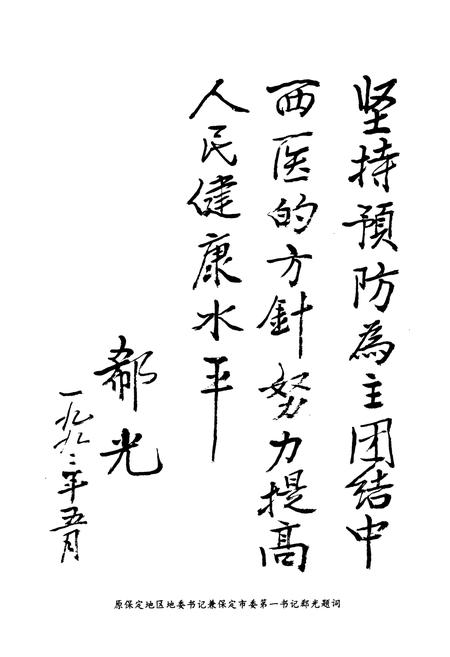 坚持預防為主团结中
西医的方針努力提高
人民健康水平
郗光
一九九二年五月
原保定地区地委书记兼保定市委第一书记郄光题词